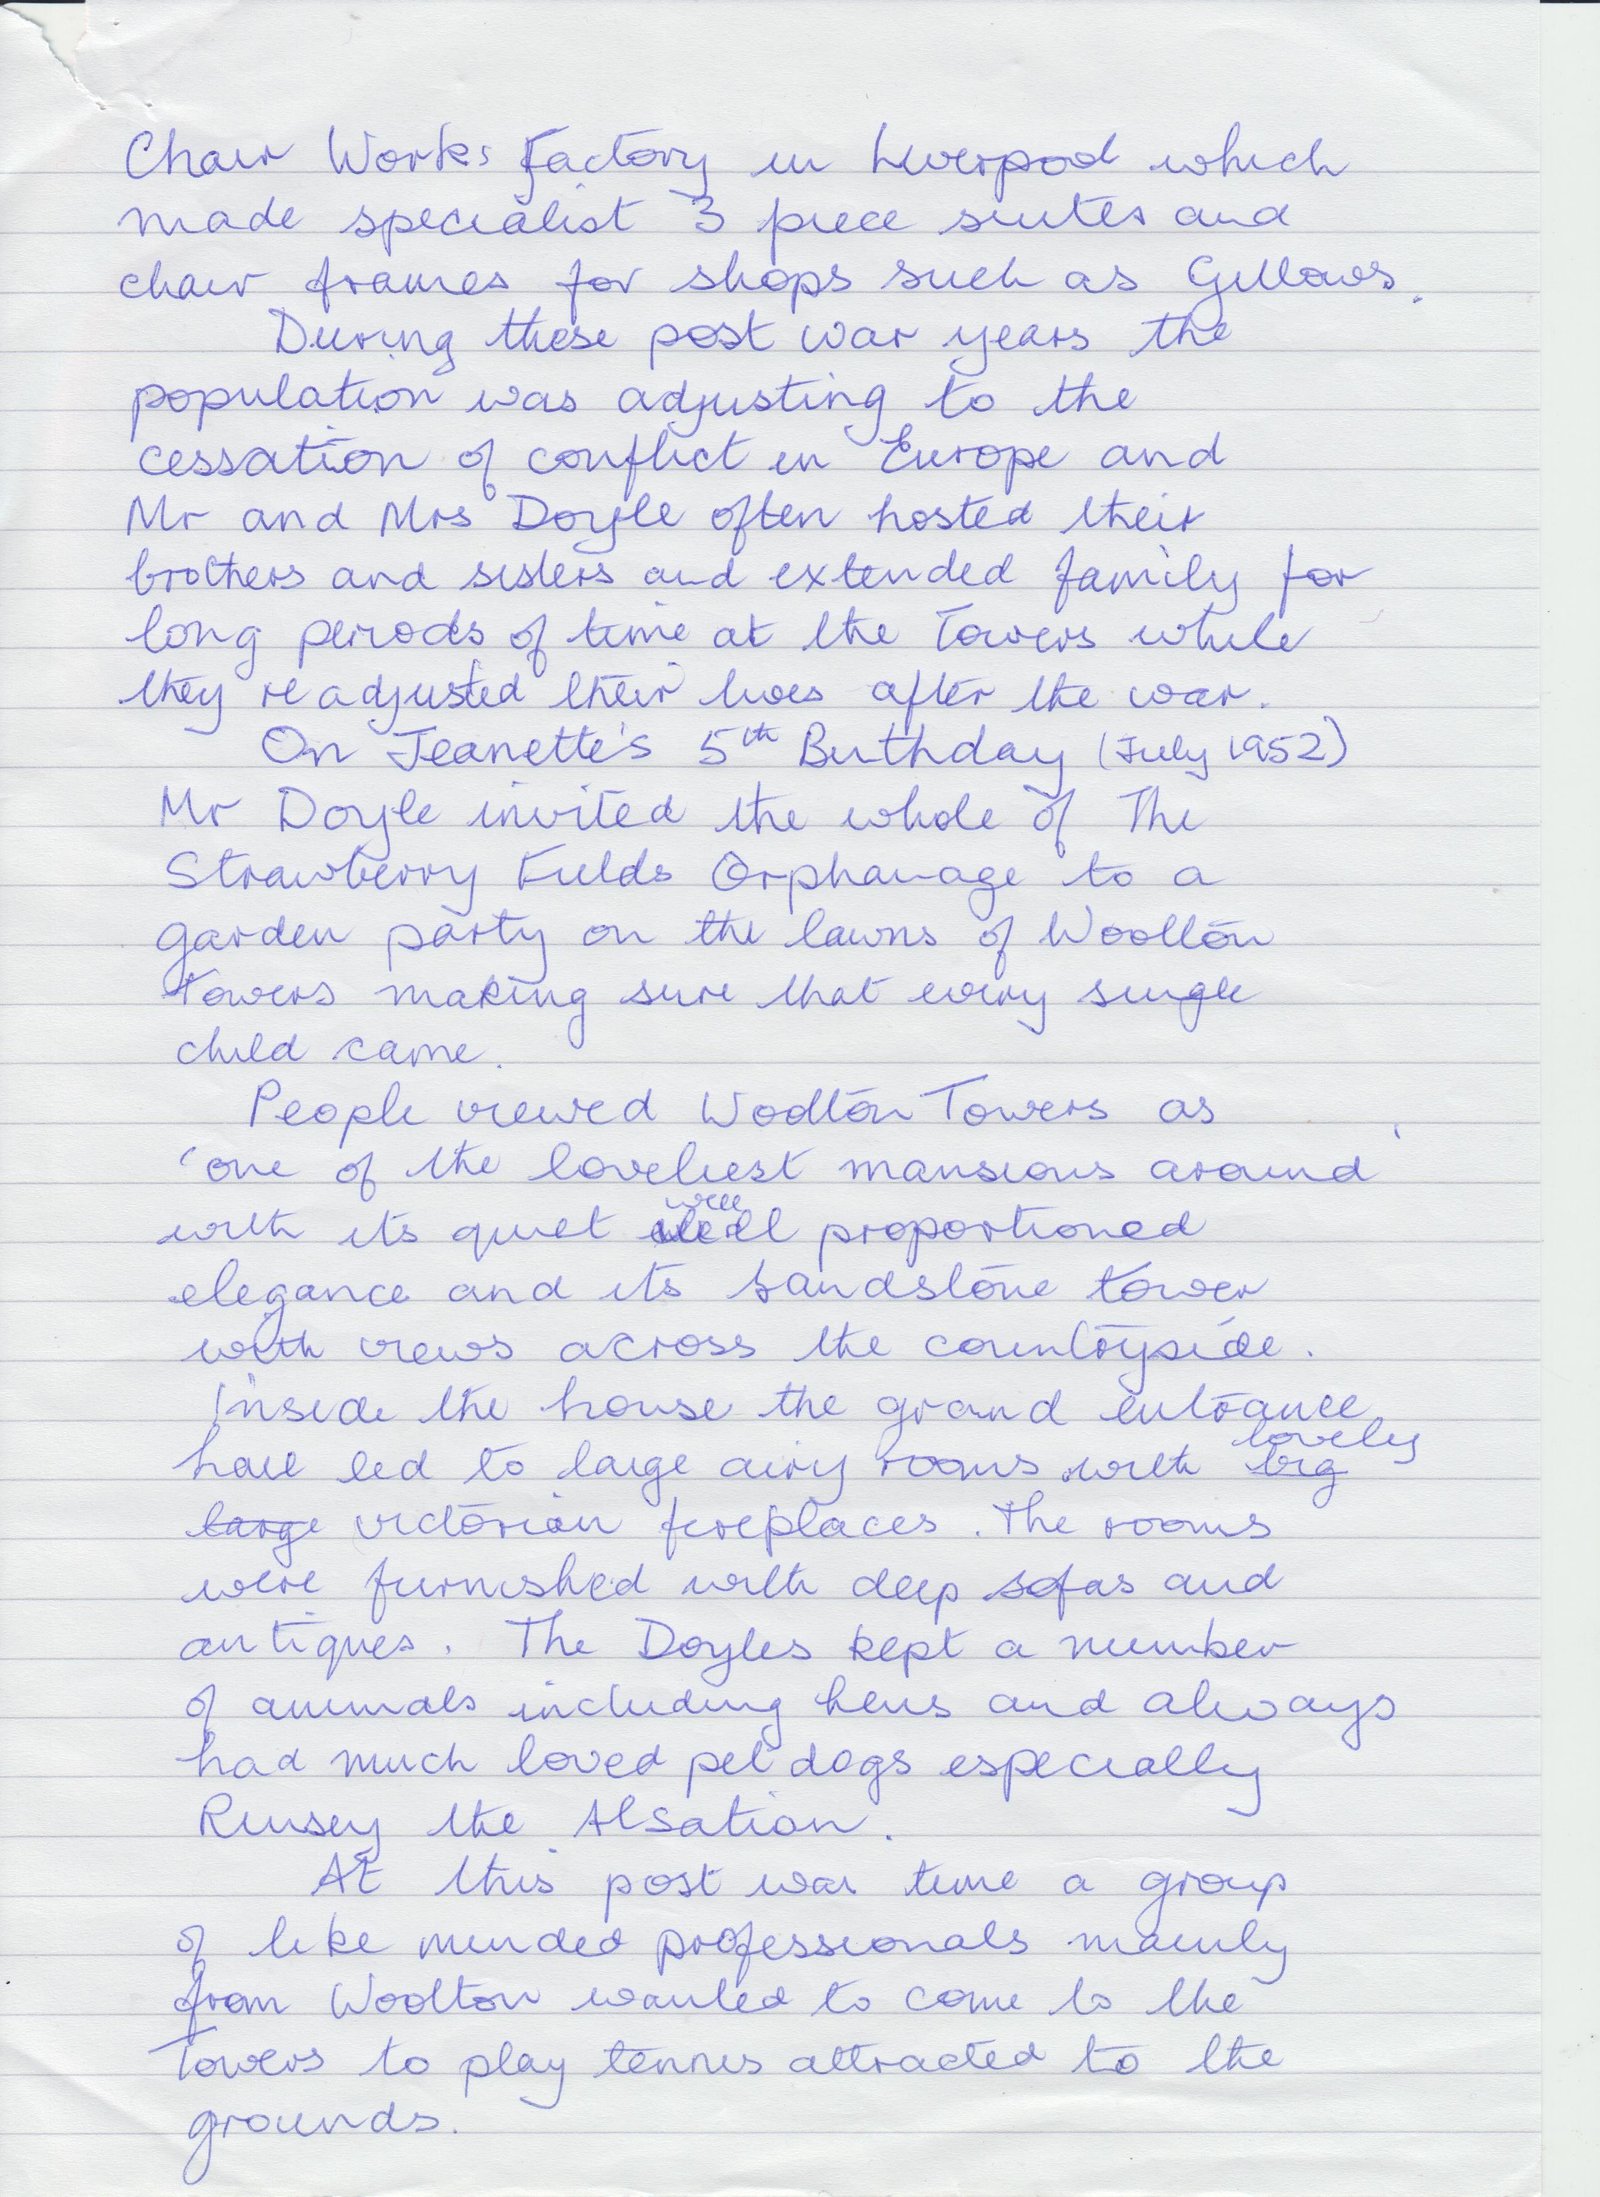 Chair Works Factory in Liverpool which
made specialist 3 piece suites and
chair frames for shops such as Gillows.
During these post war years the
population was adjusting to the
cessation of conflict in Europe and
Mr and Mrs Doyle often hosted their
brothers and sisters and extended family for
long periods of time at the Towers while
they readjusted their lives after the war.
On Jeanette's 5th Birthday (July 1952)
Mr Doyle invited the whole of The
Strawberry Fields Orphanage to a
garden party on the lawns of Woolton
Towers making sure that every single
child came.
People viewed Woolton Towers as
'one of the loveliest mansions around'
well
with its quiet well proportioned
elegance and its sandstone tower
with views across the countryside.
Inside the house the grand entrance
lovely
hall led to large airy rooms with big
large victorian fireplaces. The rooms
were furnished with deep sofas and
antiques. The Doyles kept a number
of animals including hens and always
had much loved pet dogs especially
Rinsey the Alsation.
At this post war time a group
of like minded professionals mainly
from Woolton wanted to come to the
Towers to play tennis attracted to the
grounds.